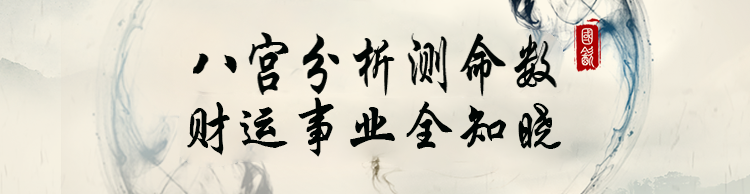 八宫分析测命数
财运事业全知晓